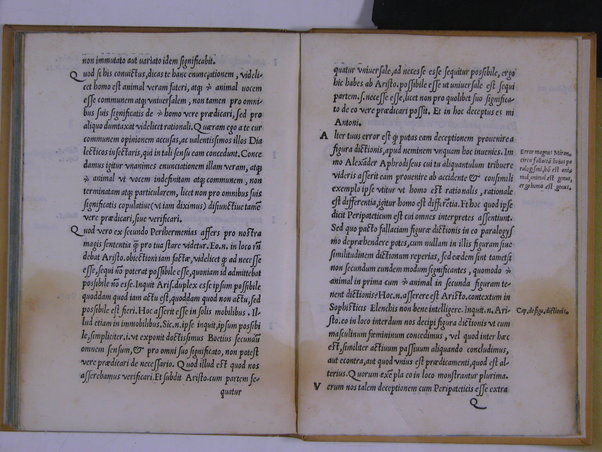 non immutato aut variato idem significabit.
Quod si his convictus, dicas te hanc enunciationem, videli-
cet homo est animal veram fateri, atqȝ animal vocem
esse communem atqȝ vniversalem, non tamen pro omni-
bus suis significatis de homo vere prædicari, sed pro
aliquo dumtaxat videlicet rationali. Quæram ego a te cur
communem opinionem accusas, ac valentissimos illos Dia
lecticos insectaris, qui in tali sensu eam concedunt. Conce-
damus igitur vnanimes enunciationem illam veram, atqȝ
animal vt vocem indefinitam atqȝ communem, non
terminatam atqȝ particularem, licet non pro omnibus suis
significatis copulatiue (vt iam diximus) disiunctiue tamē
vere prædicari, siue verificari.
Quod vero ex secundo Perihermenias affers pro nostra
magis sententia q̄ pro tua stare videtur. Eo .n. in loco rū
debat Aristo. obiectioni iam factæ, videlicet q̄ ad necesse
esse, sequi nō poterat possibile esse, quoniam id admittebat
possibile nō esse. Inquit Aris. duplex esse ipsum possibile
quoddam quod iam actu est, quoddam quod non actu, sed
possibile est fieri. Hoc asserit esse in solis mobilibus. Il-
lud etiam in immobilibus. Sic .n. ipse inquit, ipsum possibi
le, simpliciter. i. vt exponit doctissimus Boetius secundū
omnem sensum, & pro omni suo significato, non potest
vere prædicari de necessario. Quod illud est quod nos
asserebamus verificari. Et subdit Aristo. cum partem se-
quatur
quatur vniuersale, ad necesse esse sequitur possibile, ergo
hic habes ab Aristo. possibile vt vniuersale est sequi
partem .s. necesse esse, licet non pro quolibet suo significa-
to de eo vere prædicari possit. Et in hoc deceptus es mi
Antoni.
Alter tuus error est q̄ putas eam deceptionem prouenire a
figura dictionis, apud neminem vnquam hoc inuenies. Im
mo Alexāder Aphrodiseus cui tu aliquantulum tribuere
videris asserit eam prouenire ab accidente & consimili
exemplo ipse vtitur vt homo est rationalis, rationale
est differentia, igitur homo est differētia. Et hoc quod ipse
dicit Peripateticum est cui omnes interpretes assentiunt.
Sed quo pacto fallaciam figuræ dictionis in eo paralogis
mo depræhendere potes, cum nullam in illis figuram siue
similitudinem dictionum reperias, sed eædem sint tametsi
non secundum eundem modum significantes, quomodo
animal in prima cum animal in secunda figuram te-
nent dictionis? Hoc .n. asserere est Aristo. contextum in
Sophisticis Elenchis non bene intelligere. inquit .n. Ari-
sto. eo in loco interdum nos decipi figura dictionis vt cum
masculinum fœmininum concedimus, vel quod inter hæc
est, similiter actiuum passiuum aliquando concludimus,
aut econtra, aut quod vnius est prædicamenti, quod est al-
terius. Quorum exēpla eo in loco monstrantur plurima.
Verum nos talem deceptionem cum Peripateticis esse extra
Q
Cap. de figu. dictionis.